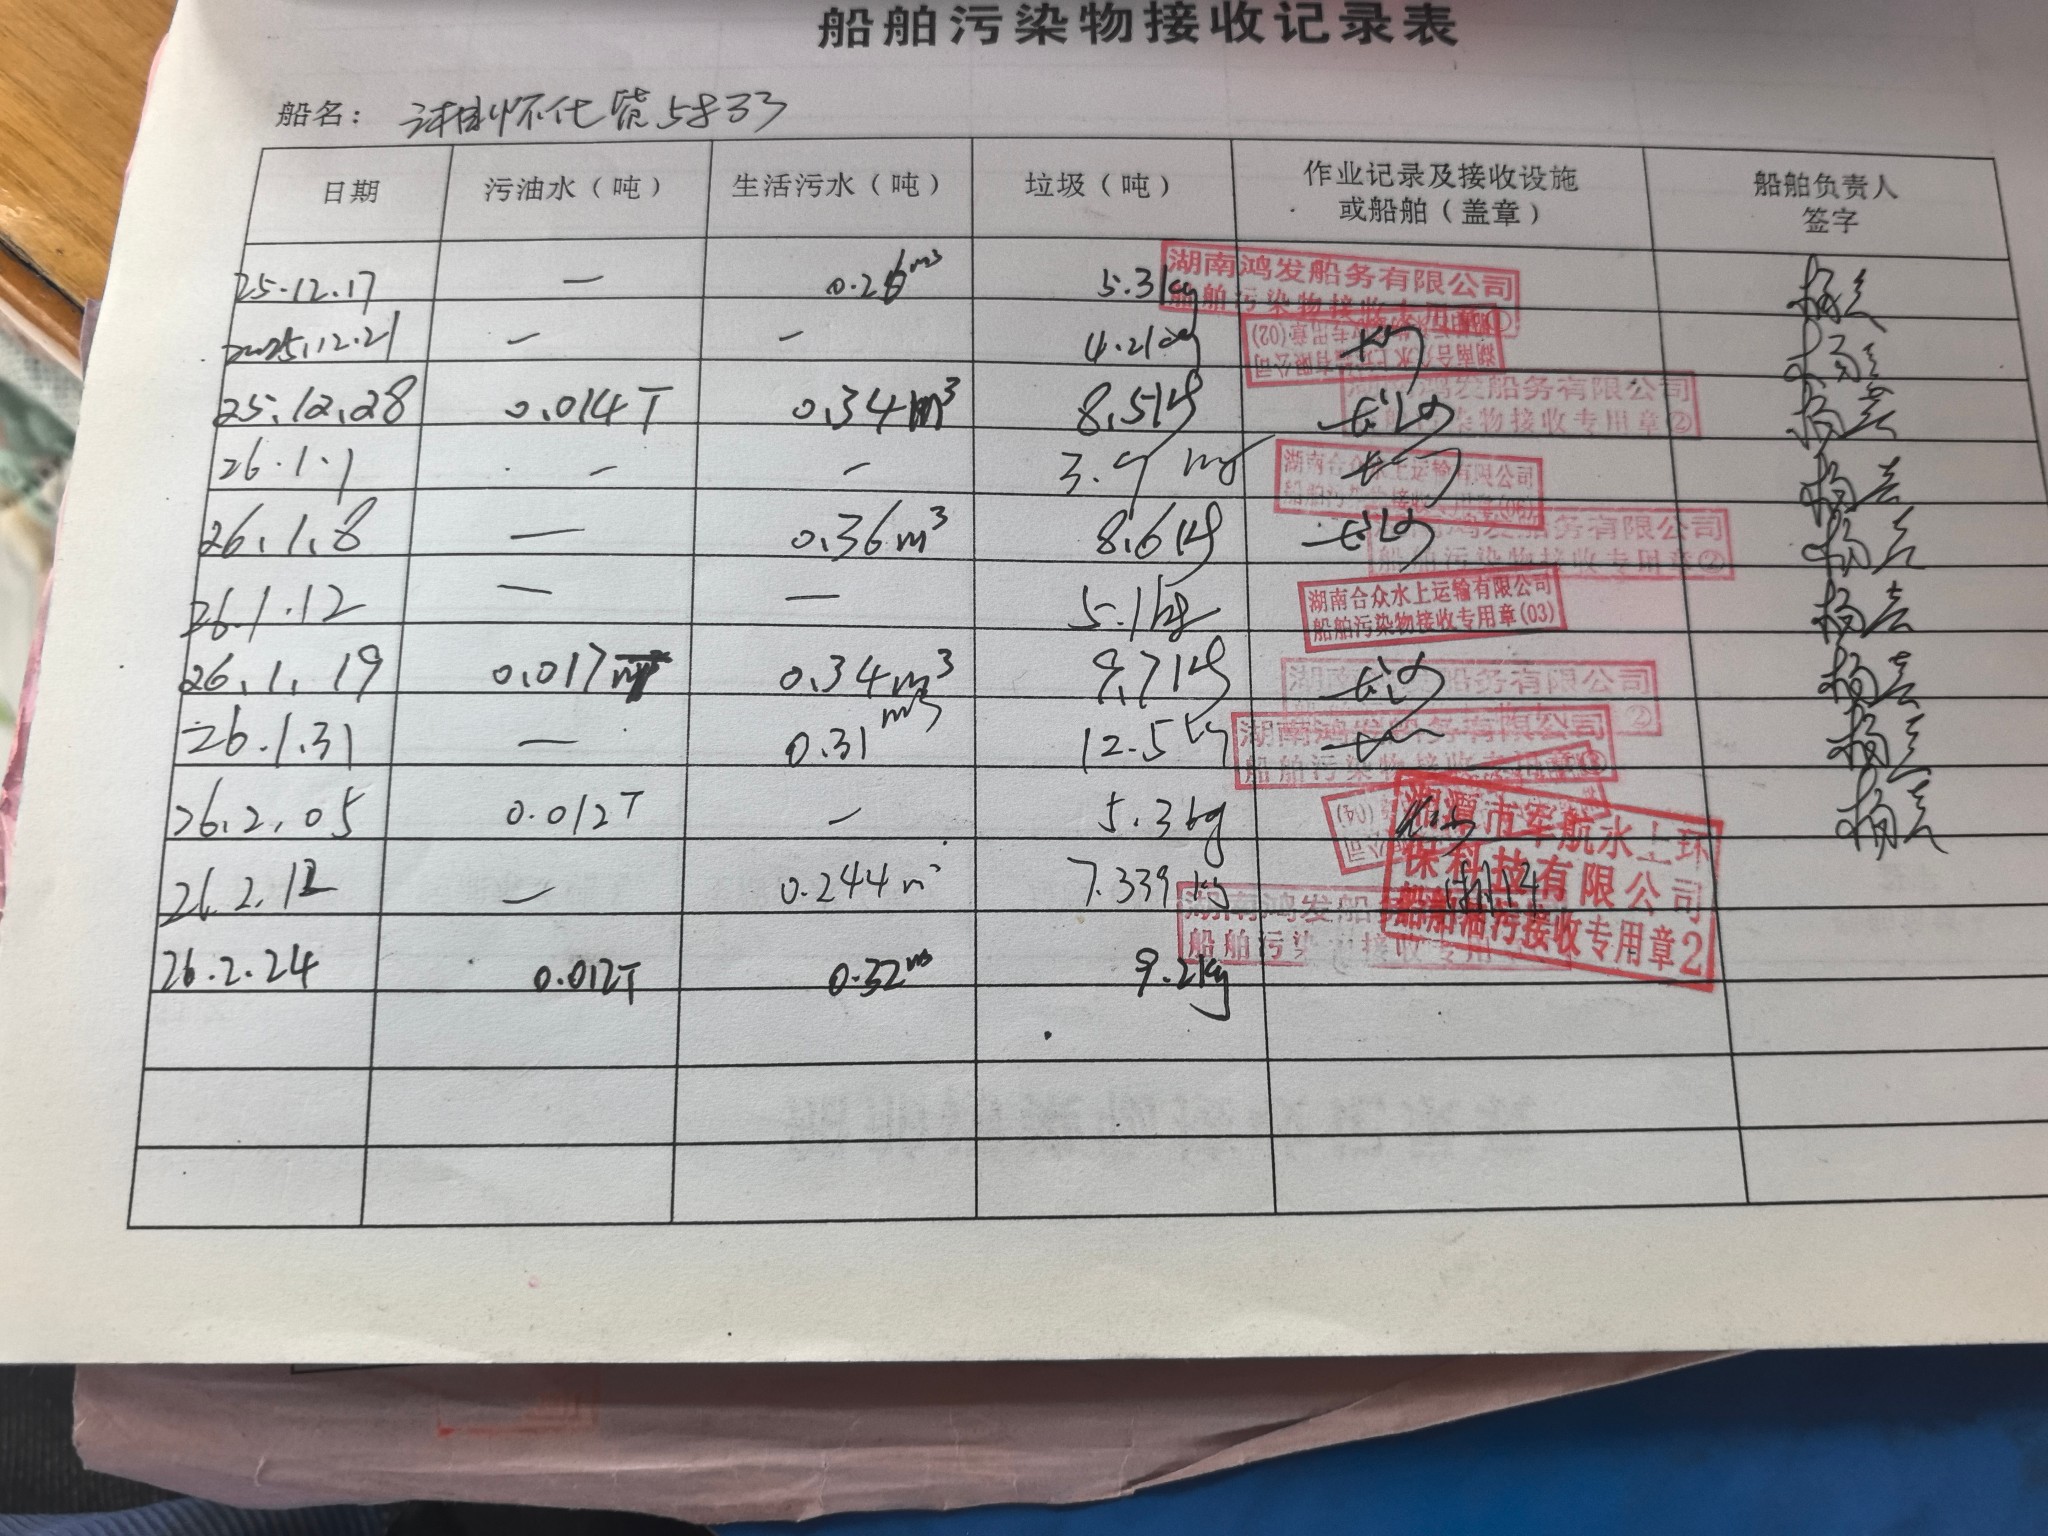 船舶污染物接收记录表
船名: 怀化货5833
日期 污油水(吨) 生活污水(吨) 垃圾(吨) 作业记录及接收设施或船舶(盖章) 船舶负责人签字
25.12.17 — 0.26m³ 5.3kg 湖南鸿发船务有限公司 船舶污染物接收专用章①
2025.12.21 — — 4.2kg
25.12.28 0.014T 0.34m³ 8.5kg 湖南鸿发船务有限公司 船舶污染物接收专用章②
26.1.1 — — 湖南合众水上运输有限公司 船舶污染物接收专用章(06)
26.1.8 — 0.36m³ 8.6kg 湖南鸿发船务有限公司 船舶污染物接收专用章②
26.1.12 — — 5.1kg 湖南合众水上运输有限公司 船舶污染物接收专用章(03)
26.1.19 0.017 0.34m³ 9.7kg 船务有限公司 ②
26.1.31 — 0.31m³ 12.5kg 湖南鸿发船务有限公司 船舶污染物接收
26.2.05 0.012T — 5.3kg
26.2.12 — 0.244m³ 7.339kg 湘潭市军航水上环保科技有限公司 船舶油污接收专用章2
26.2.24 0.012T 0.32m³ 9.2kg 湖南鸿发船 船舶污染物接收专用